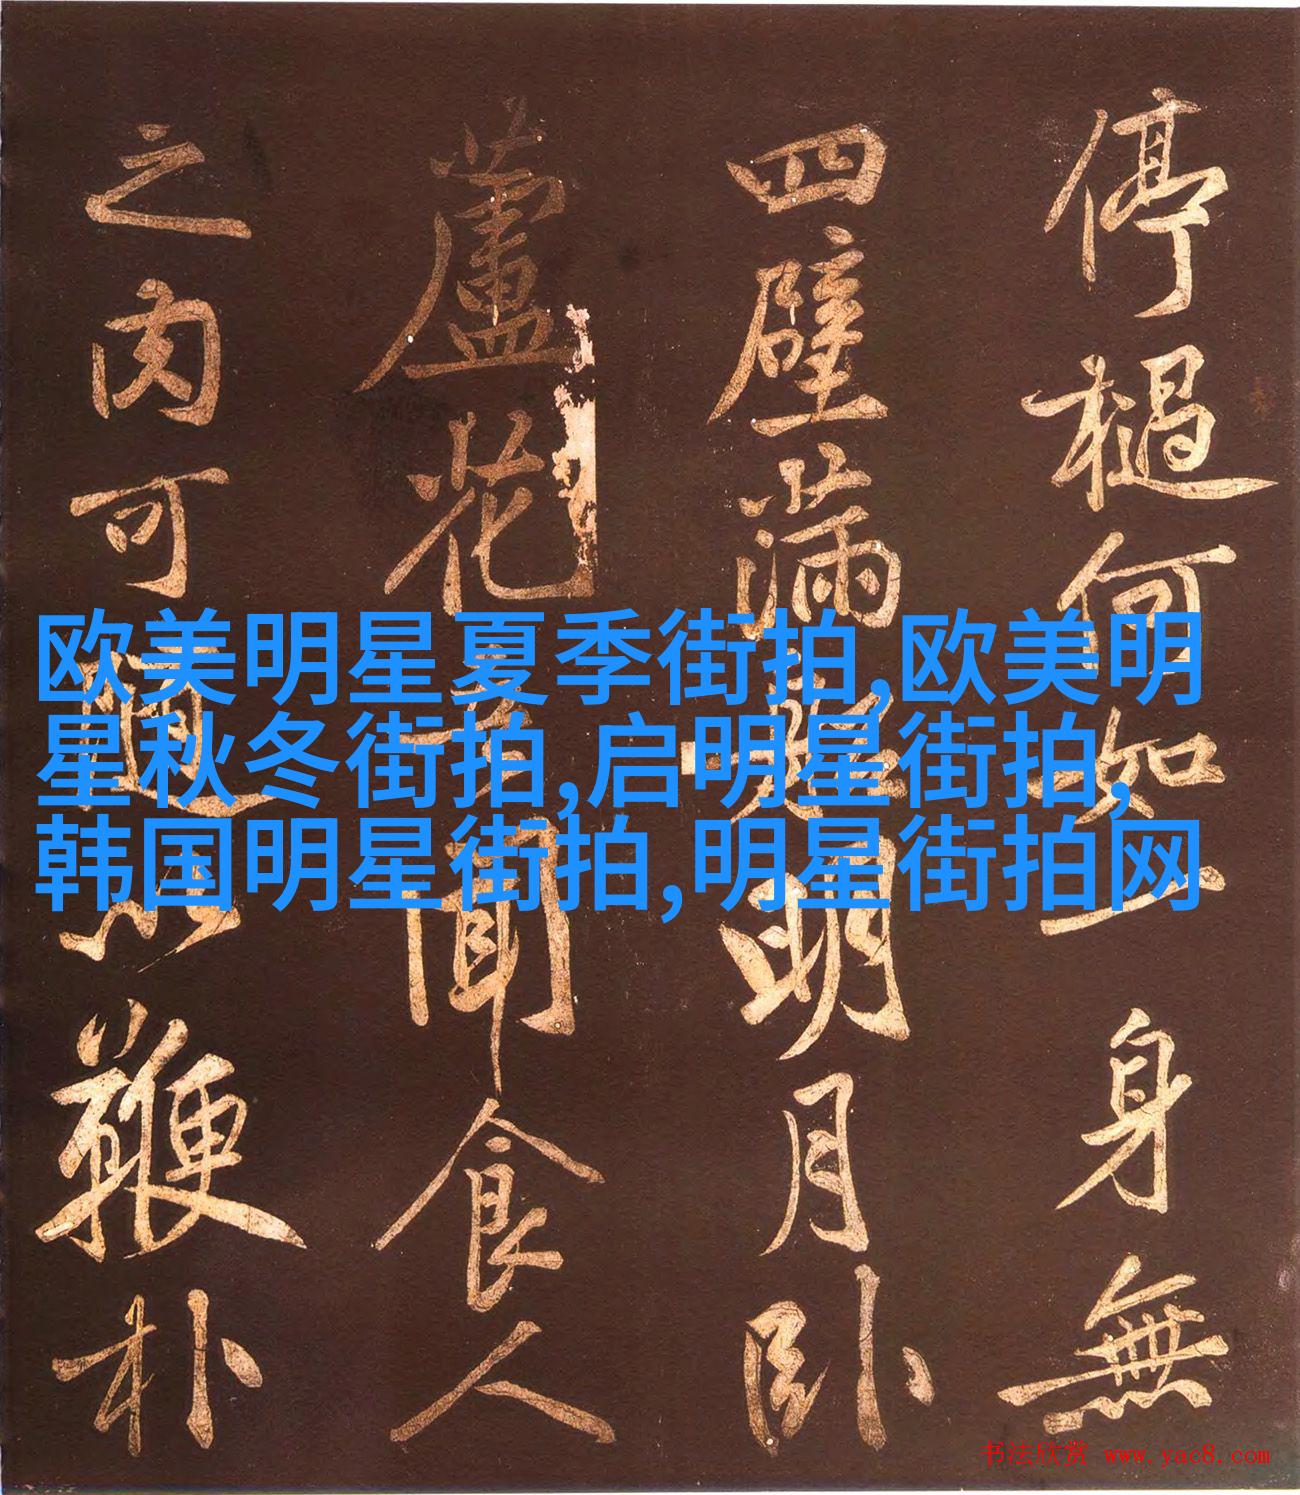 欧美明星夏季街拍,欧美明
星秋冬街拍,启明星街拍,
韩国明星街拍,明星街拍网
停檛何如一身無
四壁滿船明月卧
蘆花吾聞食人
之肉可隨以鞭朴
书法欣赏 www.yac8.com